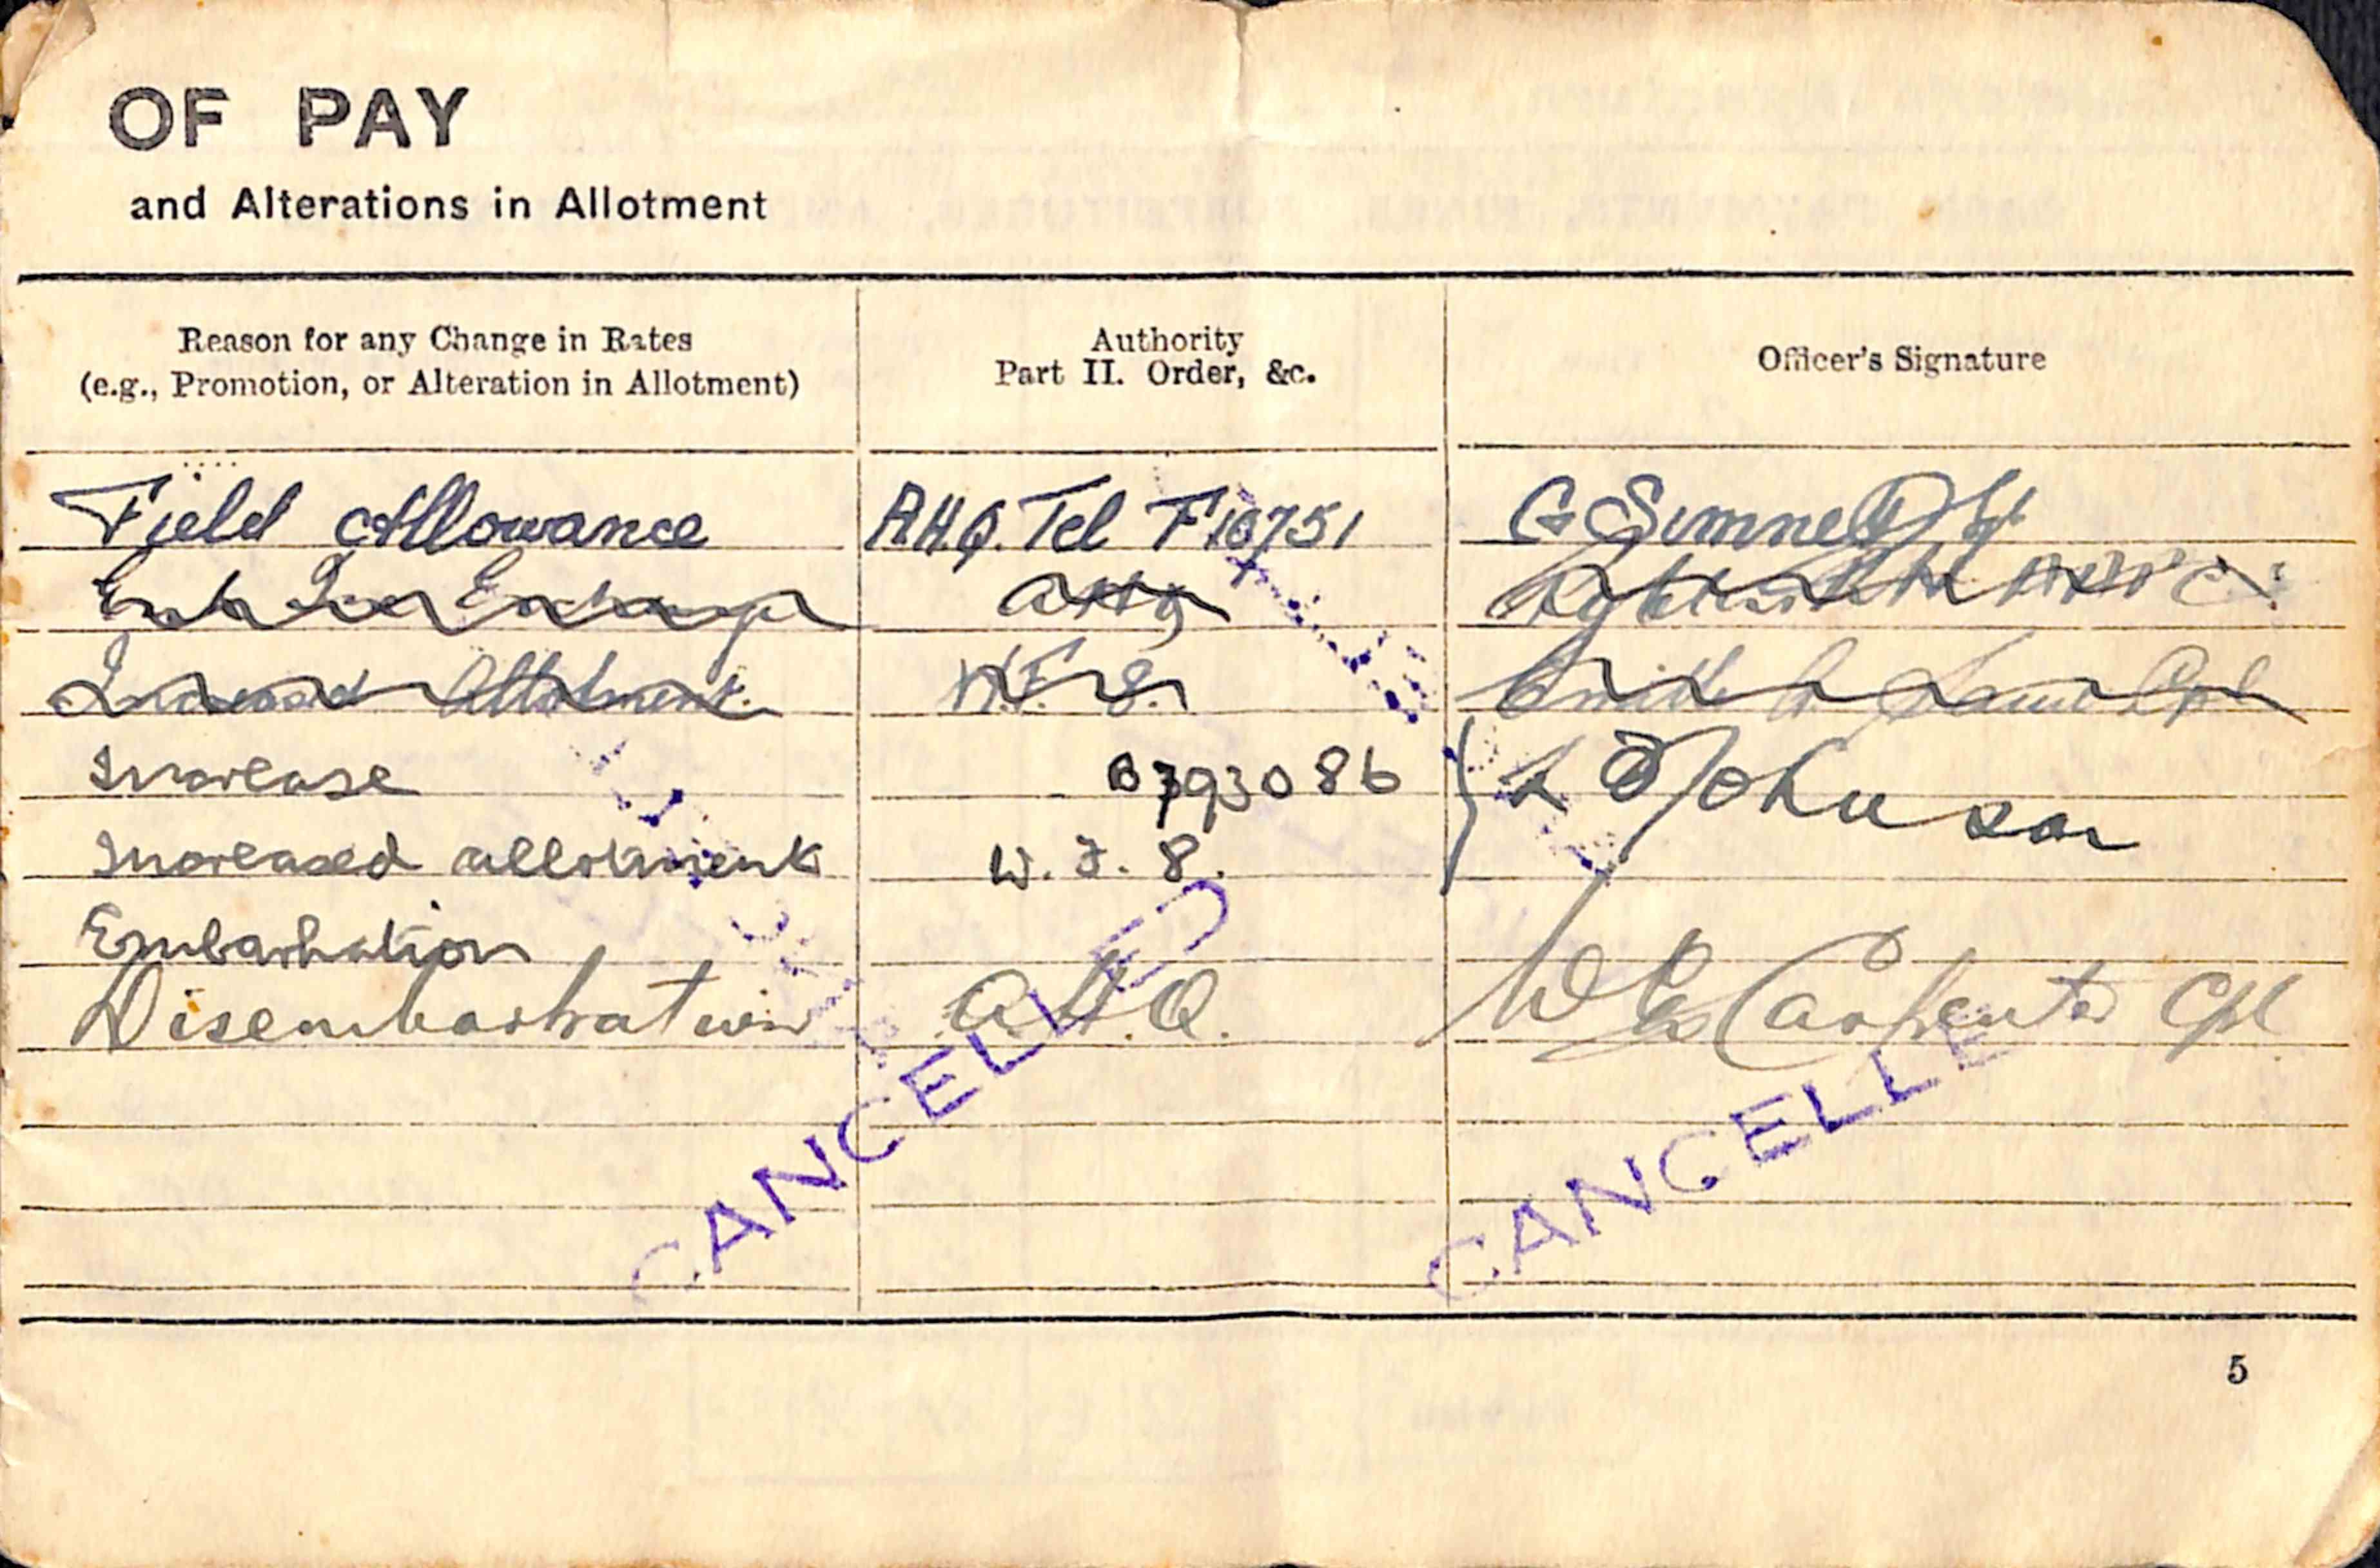 OF PAY
and Alterations in Allotment
Reason for any Change in Rates
(e.g., Promotion, or Alteration in Allotment)
Authority
Part II. Order, &c.
Officer's Signature
Field Allowance A.H.Q. Tel F10751 G
AHQ
Increased Allotment W.F. 8.
Increase 8793086 Johnson
Increased allotment W.F. 8.
Embarkation
Disembarkation A.H.Q. W Carpenter Cpl
CANCELLED
CANCELLE
5